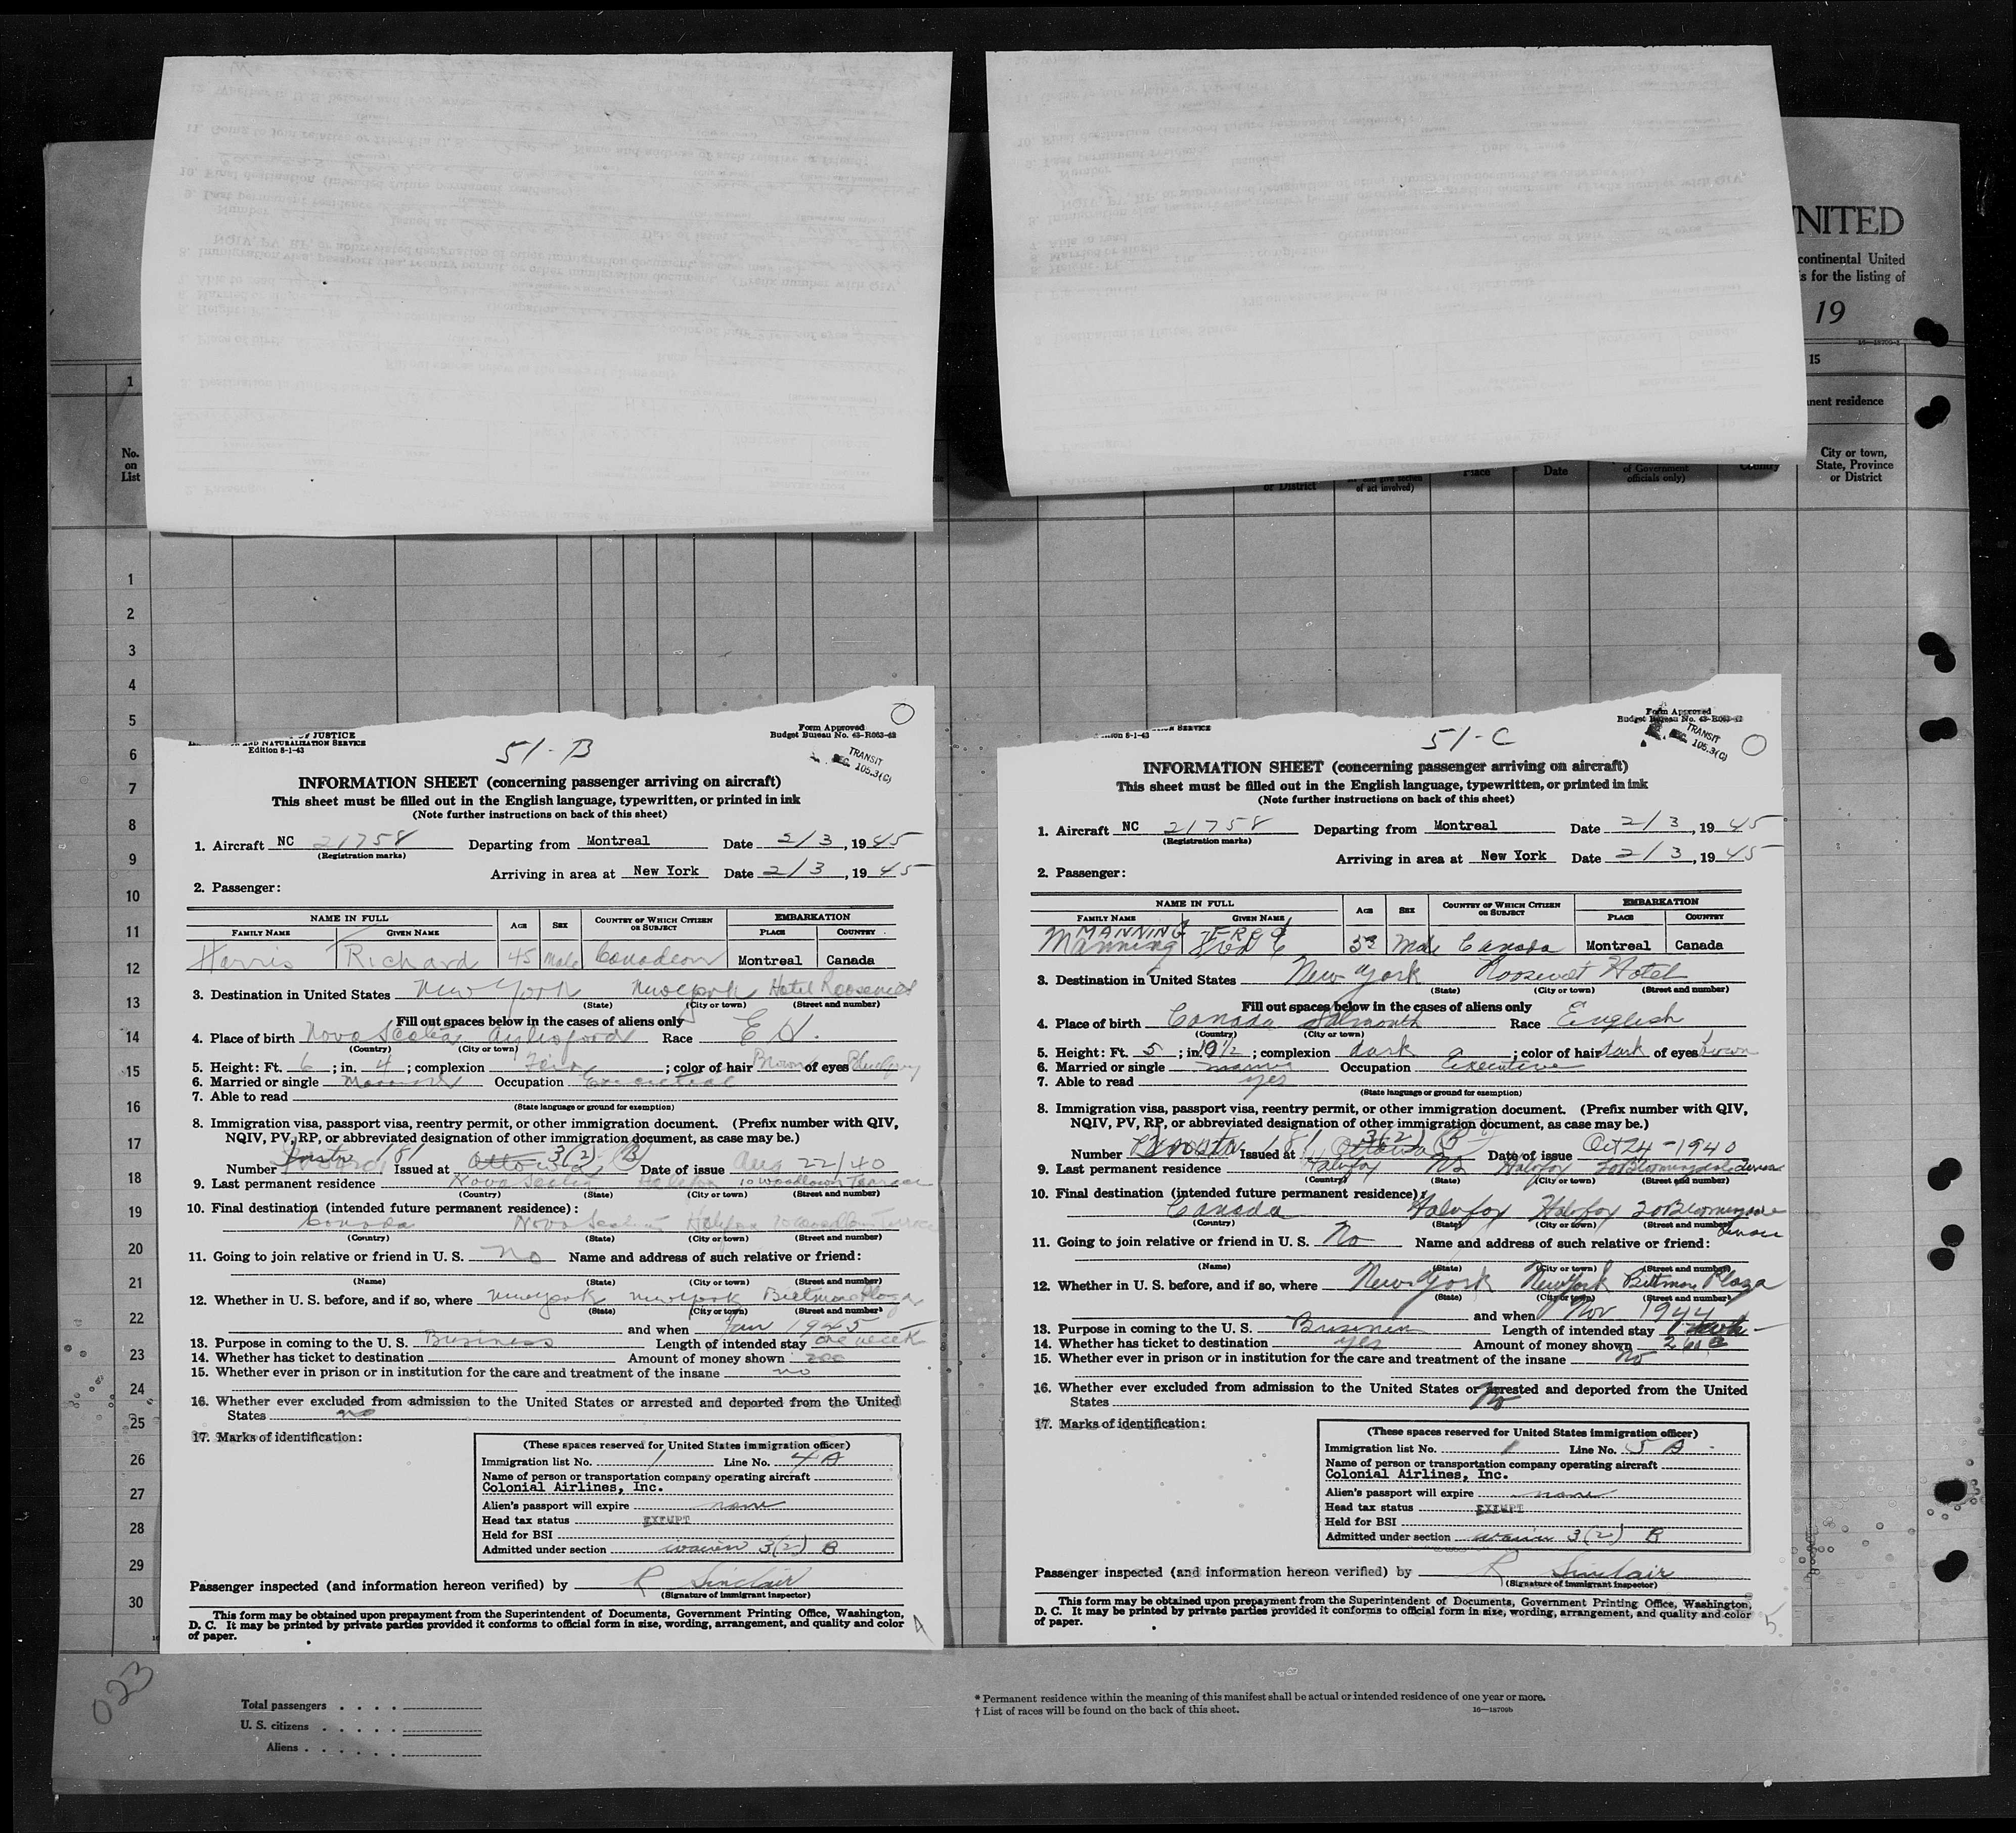 NITED
continental United
s for the listing of
19
16—18709-1
1
15
nent residence
No.
on
List
City or town,
State, Province
or District
or District
of act involved)
Place
Date
of Government
officials only)
Country
1
2
3
4
5
6
7
8
9
10
11
12
13
14
15
16
17
18
19
20
21
22
23
24
25
26
27
28
29
30
OF JUSTICE
AND NATURALIZATION SERVICE
Edition 8-1-43
51-B
Form Approved
Budget Bureau No. 43-R063-42
TRANSIT
SEC. 105.3(C)
INFORMATION SHEET (concerning passenger arriving on aircraft)
This sheet must be filled out in the English language, typewritten, or printed in ink
(Note further instructions on back of this sheet)
1. Aircraft NC 21758 Departing from Montreal Date 2/3, 1945
(Registration marks)
Arriving in area at New York Date 2/3, 1945
2. Passenger:
NAME IN FULL AGE SEX COUNTRY OF WHICH CITIZEN OR SUBJECT EMBARKATION
FAMILY NAME GIVEN NAME PLACE COUNTRY
Harris Richard 45 Male Canadian Montreal Canada
3. Destination in United States New York New York Hotel Roosevelt
(State) (City or town) (Street and number)
Fill out spaces below in the cases of aliens only
4. Place of birth Nova Scotia Aylesford Race E H.
(Country) (City or town)
5. Height: Ft. 6; in. 4; complexion Fair; color of hair Brown of eyes Blue gray
6. Married or single Married Occupation Executive
7. Able to read
(State language or ground for exemption)
8. Immigration visa, passport visa, reentry permit, or other immigration document. (Prefix number with QIV,
NQIV, PV, RP, or abbreviated designation of other immigration document, as case may be.)
Number Instr 181 Issued at Ottawa 3(2) B Date of issue Aug 22/40
9. Last permanent residence Nova Scotia Halifax 10 Woodlawn Terrace
(Country) (State) (City or town) (Street and number)
10. Final destination (intended future permanent residence):
Canada Nova Scotia Halifax 10 Woodlawn Terrace
(Country) (State) (City or town) (Street and number)
11. Going to join relative or friend in U. S. No Name and address of such relative or friend:
(Name) (State) (City or town) (Street and number)
12. Whether in U. S. before, and if so, where New York New York Biltmore Plaza
(State) (City or town) (Street and number)
and when Jan 1945
13. Purpose in coming to the U. S. Business Length of intended stay one week
14. Whether has ticket to destination Amount of money shown 200
15. Whether ever in prison or in institution for the care and treatment of the insane no
16. Whether ever excluded from admission to the United States or arrested and deported from the United
States no
17. Marks of identification:
(These spaces reserved for United States immigration officer)
Immigration list No. 1 Line No. 4 A
Name of person or transportation company operating aircraft
Colonial Airlines, Inc.
Alien's passport will expire none
Head tax status EXEMPT
Held for BSI
Admitted under section waiver 3(2) B
Passenger inspected (and information hereon verified) by R Sinclair
(Signature of immigrant inspector)
This form may be obtained upon prepayment from the Superintendent of Documents, Government Printing Office, Washington,
D. C. It may be printed by private parties provided it conforms to official form in size, wording, arrangement, and quality and color
of paper.
4
SERVICE
Edition 8-1-43
51-C
Form Approved
Budget Bureau No. 43-R063-42
TRANSIT
SEC. 105.3(C)
INFORMATION SHEET (concerning passenger arriving on aircraft)
This sheet must be filled out in the English language, typewritten, or printed in ink
(Note further instructions on back of this sheet)
1. Aircraft NC 21758 Departing from Montreal Date 2/3, 1945
(Registration marks)
Arriving in area at New York Date 2/3, 1945
2. Passenger:
NAME IN FULL AGE SEX COUNTRY OF WHICH CITIZEN OR SUBJECT EMBARKATION
FAMILY NAME GIVEN NAME PLACE COUNTRY
MANNING FRED
Manning Fred C Male Canada Montreal Canada
3. Destination in United States New York Roosevelt Hotel
(State) (City or town) (Street and number)
Fill out spaces below in the cases of aliens only
4. Place of birth Canada Falmouth Race English
(Country) (City or town)
5. Height: Ft. 5; in. 10 1/2; complexion dark; color of hair dark of eyes brown
6. Married or single married Occupation Executive
7. Able to read yes
(State language or ground for exemption)
8. Immigration visa, passport visa, reentry permit, or other immigration document. (Prefix number with QIV,
NQIV, PV, RP, or abbreviated designation of other immigration document, as case may be.)
Number 181 Issued at Ottawa 3(2) B Date of issue Oct 24-1940
9. Last permanent residence Halifax NS Halifax 20 Bloomingdale Terrace
(Country) (State) (City or town) (Street and number)
10. Final destination (intended future permanent residence):
Canada Halifax Halifax 20 Bloomingdale Terrace
(Country) (State) (City or town) (Street and number)
11. Going to join relative or friend in U. S. No Name and address of such relative or friend:
(Name) (State) (City or town) (Street and number)
12. Whether in U. S. before, and if so, where New York New York Biltmore Plaza
(State) (City or town) (Street and number)
and when Nov 1944
13. Purpose in coming to the U. S. Business Length of intended stay 1 week
14. Whether has ticket to destination yes Amount of money shown
15. Whether ever in prison or in institution for the care and treatment of the insane no
16. Whether ever excluded from admission to the United States or arrested and deported from the United
States No
17. Marks of identification:
(These spaces reserved for United States immigration officer)
Immigration list No. 1 Line No. 5 A
Name of person or transportation company operating aircraft
Colonial Airlines, Inc.
Alien's passport will expire none
Head tax status EXEMPT
Held for BSI
Admitted under section waiver 3(2) B
Passenger inspected (and information hereon verified) by R Sinclair
(Signature of immigrant inspector)
This form may be obtained upon prepayment from the Superintendent of Documents, Government Printing Office, Washington,
D. C. It may be printed by private parties provided it conforms to official form in size, wording, arrangement, and quality and color
of paper.
5
023
Total passengers . . . .
U. S. citizens . . . . .
Aliens . . . . . .
* Permanent residence within the meaning of this manifest shall be actual or intended residence of one year or more.
† List of races will be found on the back of this sheet.
16—18709b